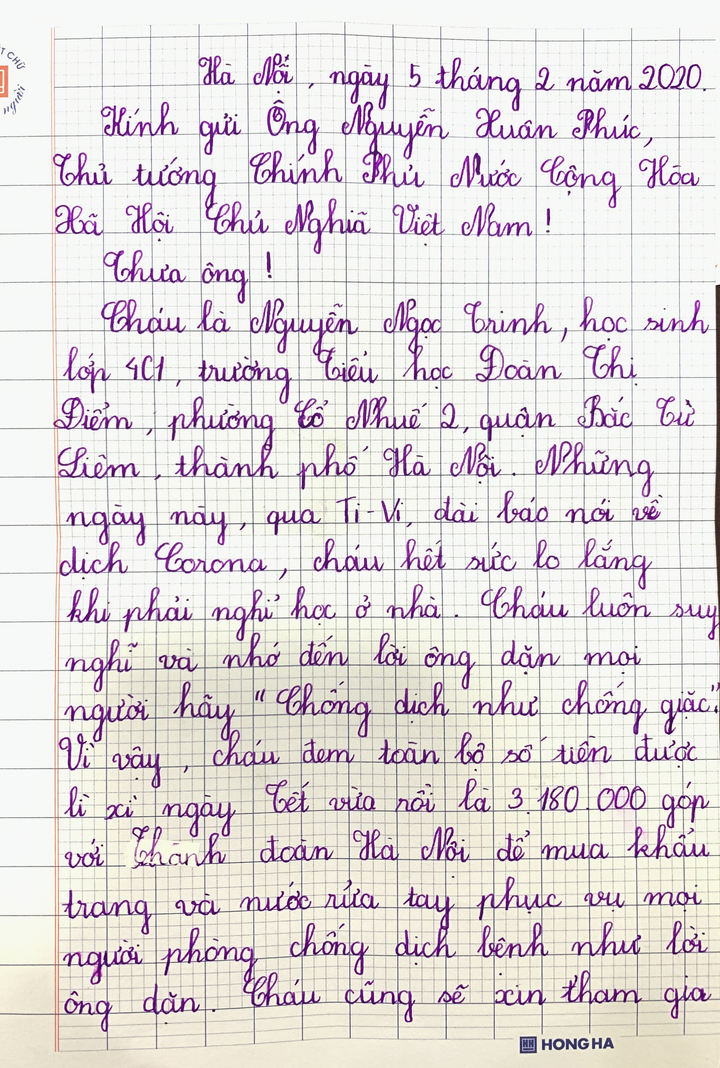 Hà Nội, ngày 5 tháng 2 năm 2020.
Kính gửi Ông Nguyễn Xuân Phúc,
Thủ tướng Chính Phủ Nước Cộng Hòa
Xã Hội Chủ Nghiã Việt Nam!
Thưa ông!
Cháu là Nguyễn Ngọc Trinh, học sinh
lớp 4C1, trường Tiểu học Đoàn Thị
Điểm, phường Cổ Nhuế 2, quận Bắc Từ
Liêm, thành phố Hà Nội. Những
ngày này, qua Ti-Vi, đài báo nói về
dịch Corona, cháu hết sức lo lắng
khi phải nghỉ học ở nhà. Cháu luôn suy
nghĩ và nhớ đến lời ông dặn mọi
người hãy "Chống dịch như chống giặc".
Vì vậy, cháu đem toàn bộ số tiền được
lì xì ngày Tết vừa rồi là 3.180.000 góp
với Thành đoàn Hà Nội để mua khẩu
trang và nước rửa tay phục vụ mọi
người phòng chống dịch bệnh như lời
ông dặn. Cháu cũng sẽ xin tham gia
HONG HA